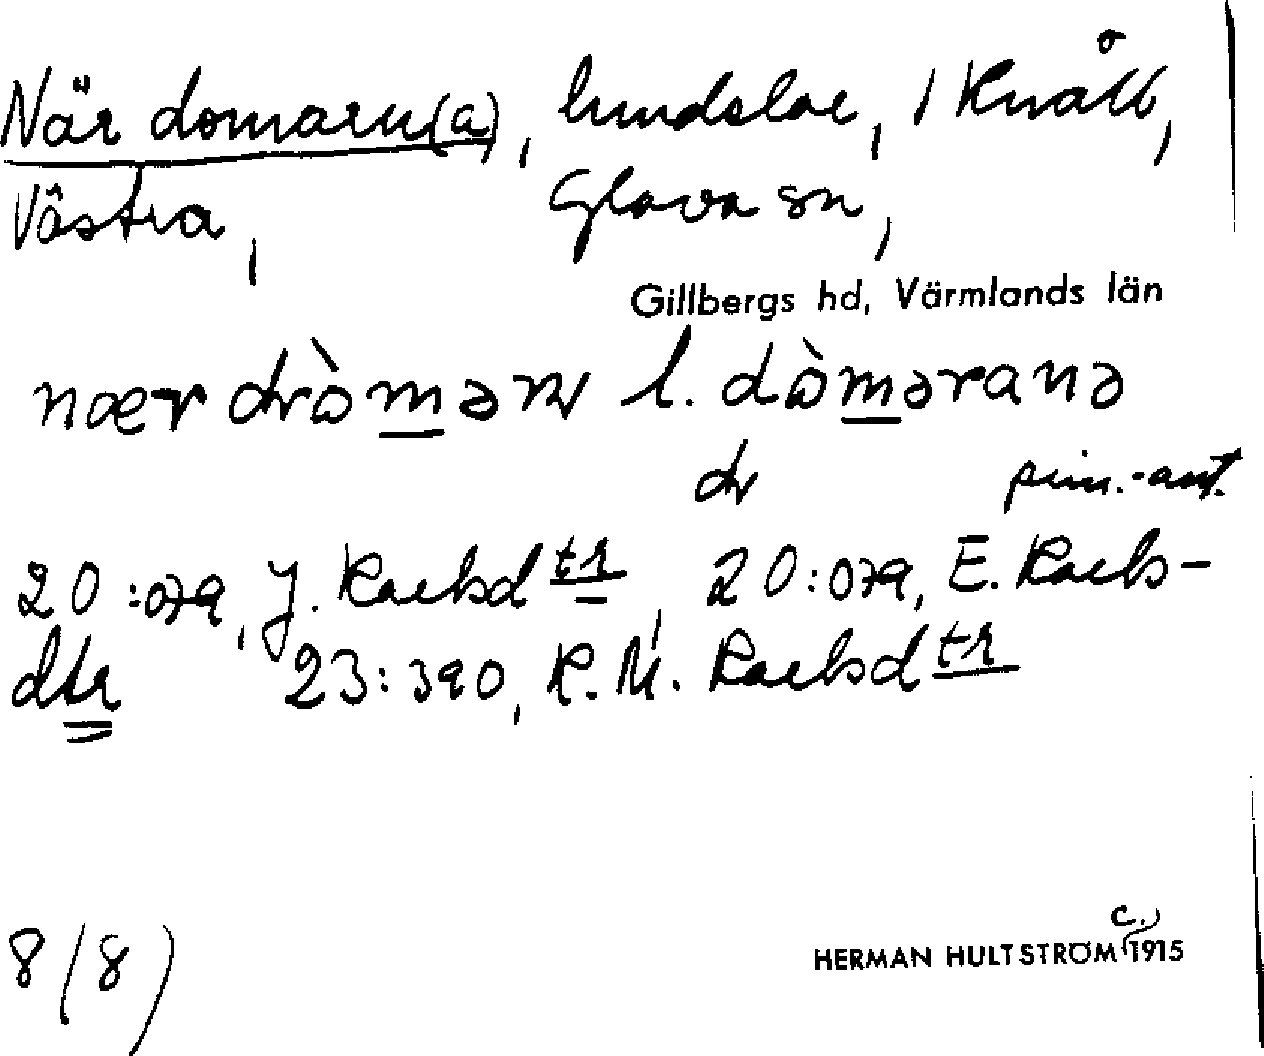 När domarn(a), lundsloe, / Knåll,
Västra, Glava sn,
Gillbergs hd, Värmlands län
nær l. dòmərana
20:079, J. Raelsdtr, 20:079, E. Raels-
dtr 23:390, R. M. Raelsdtr
8(8)
C.
HERMAN HULTSTRÖM 1915